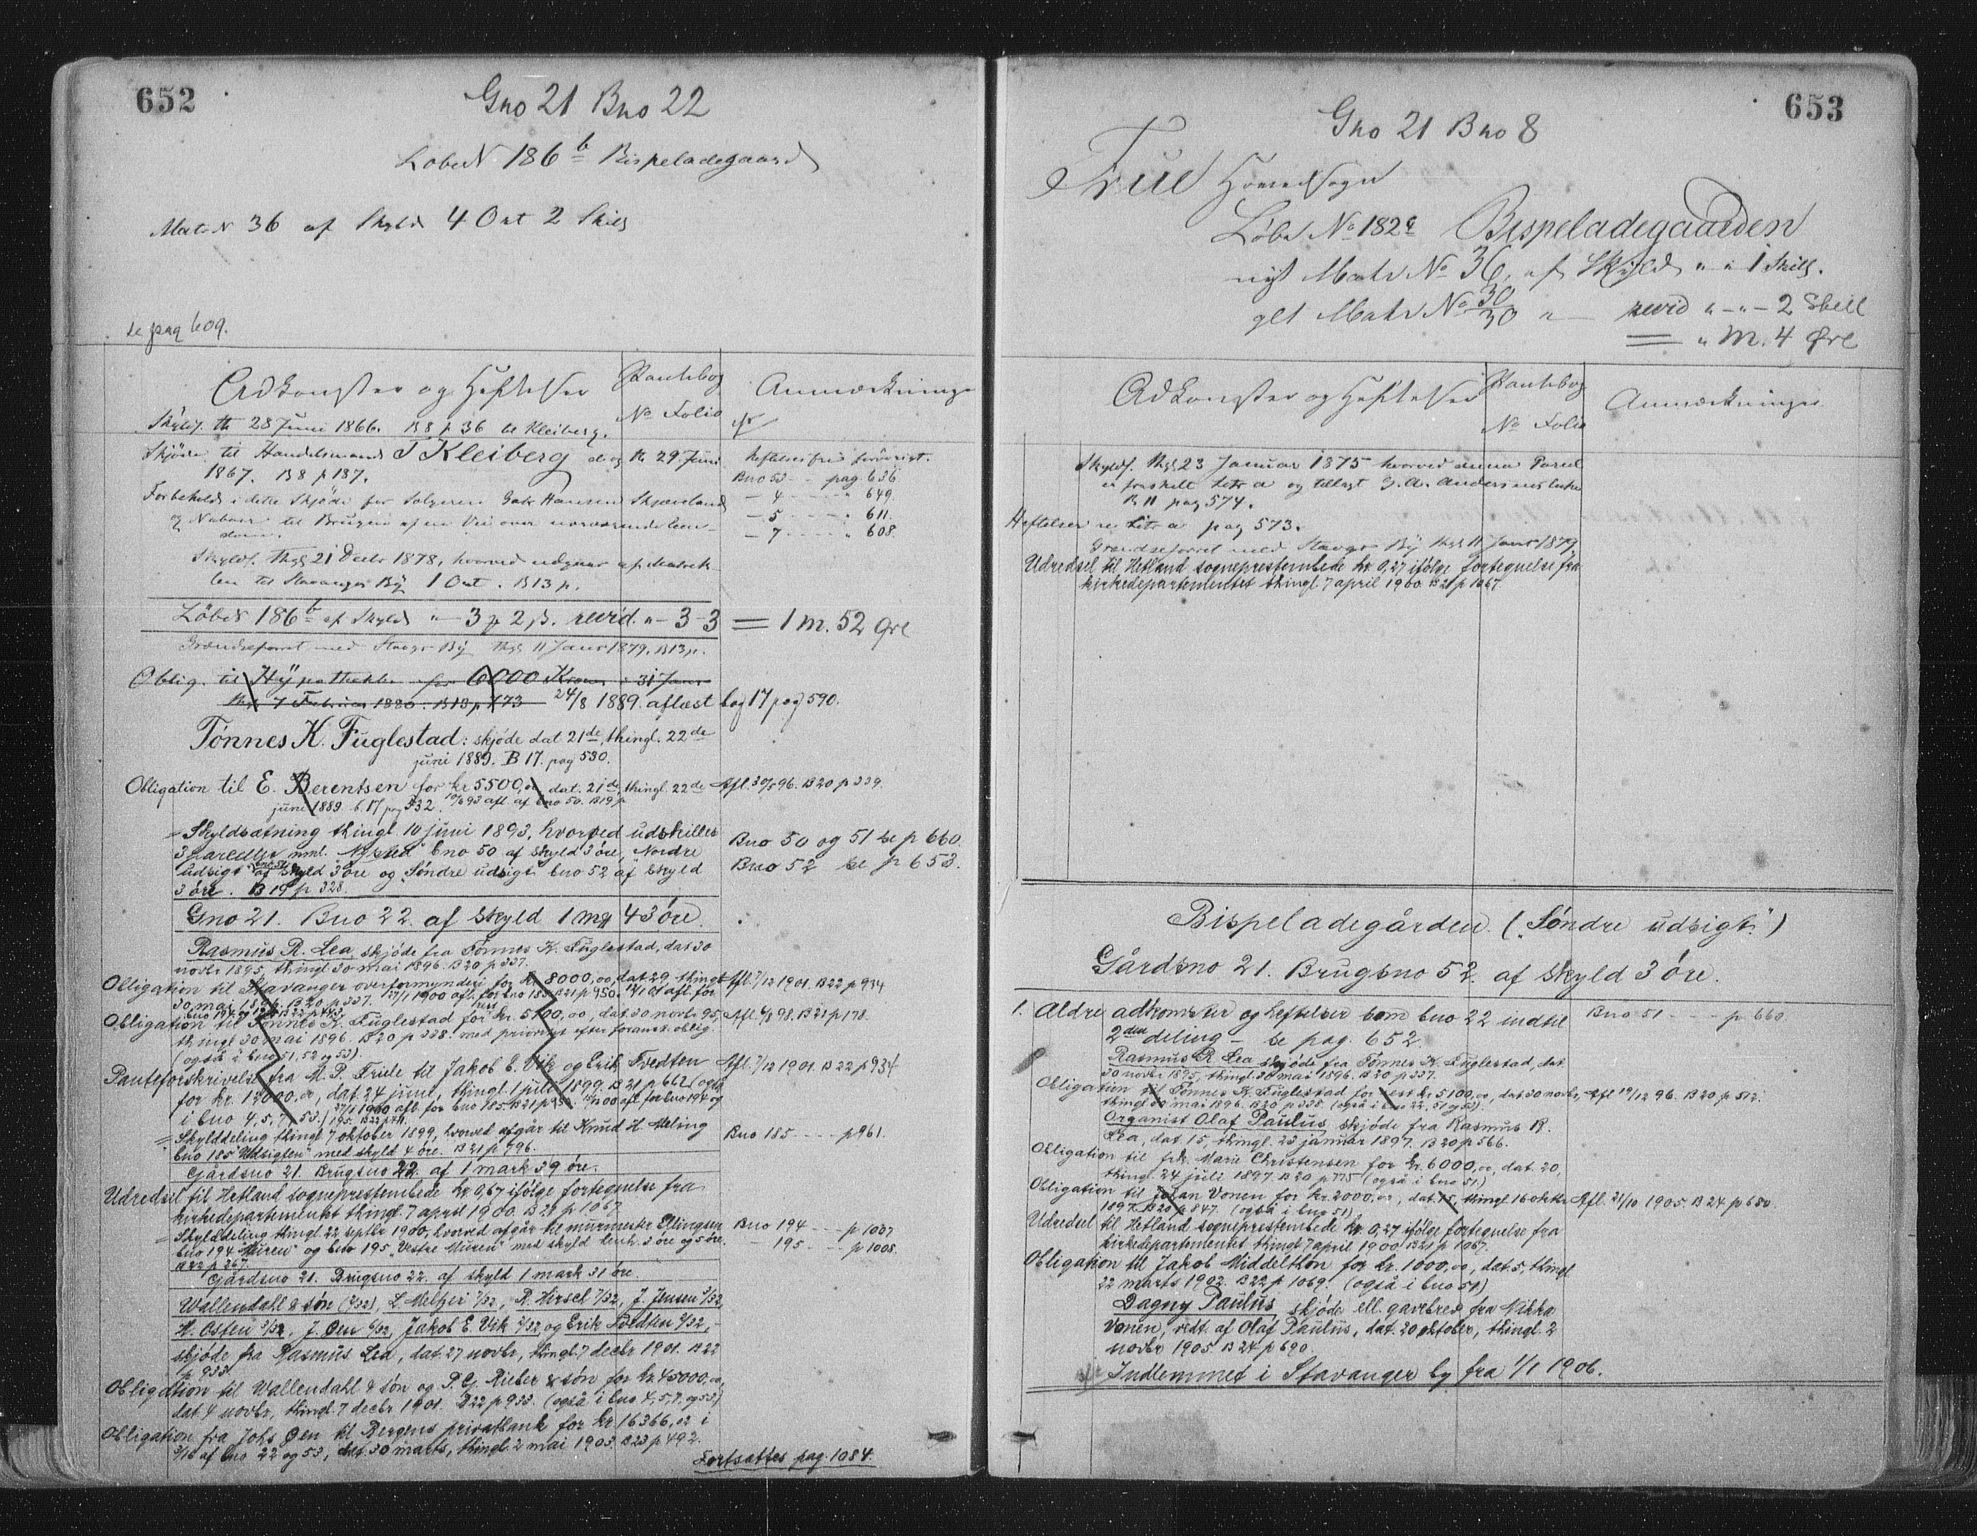 652
Gno 21 Bno 22
Løbe N 186 b Bispeladegaard
Mat N 36 af Skyld 4 Ort 2 Skill
se pag 609.
Adkomster og Heftelser
Pantebog
No Folio
Anmærkninger
Skyldf. th 28 Juni 1866. B 8 p 36 til Kleiberg.
Skjøde til Handelsmand T Kleiberg d. og th. 29 Juni
1867. B 8 p 137.
Heftelsesfrie forøvrigt.
Bno 53 - pag 636
- 4 - " 649.
- 5 - " 611.
- 7 - " 608.
Forbeholdt i dette Skjøde for Sælgeren Gabr Hansen Skjæveland
og Naboer til Brugen af en Vei over nærværende Eien-
dom.
Skyldf. thgl 21 Decbr 1878, hvorved udgaar af Matrik-
len til Stavanger By 1 Ort. B 13 p.
Løbe N 186 b af Skyld " - 3 p 2 β. revid. " - 3 - 3 = 1 m. 52 Øre
Grændseforret med Stavgr By thgl 11 Janr 1879. B 13 p.
Oblig. til Hypothekbk for 6000 Kroner 31 Janr
thgl 7 Februar 1880. B 13 p 773 24/8 1889. aflæst bog 17 pag 590.
Tønnes K. Fuglestad: skjøde dat 21de, thingl. 22de
juni 1889. B 17. pag 530.
Obligation til E. Berentsen for kr 5500,00 dat. 21de, thingl. 22de Afl. 30/5 96. B 20 p 339.
juni 1889. b. 17 pag 532. 10/6 93 afl. af bno 50. B 19 p
Skyldsætning thingl. 10 juni 1893, hvorved udskilles
3 parceller nml. "Nysted" bno 50 af skyld 3 øre, Nordre
udsigt bno 51 af skyld 3 øre og "Søndre udsigt" bno 52 af skyld
3 øre. B 19 p 328.
Bno 50 og 51 se p 660.
Bno 52 se p 653.
Gno 21. Bno 22 af skyld 1 mrk 43 øre.
Rasmus R. Lea skjøde fra Tønnes K. Fuglestad, dat 30
novbr 1895, thingl. 30 mai 1896. B 20 p 337.
Obligation til Stavanger overformynderi for kr 8000,00, dat 29, thingl Afl. 7/12 1901. B 22 p 934
30 mai 1896. B 20 p 337. 27/1 1900 afl. for bno 185 B 21 p 950. 12/1 01 afl. for
bno 194 og 195 B 22 p 443.
Obligation til Tønnes K. Fuglestad for rest kr. 5100,00, dat. 30 novbr 95, Afl. 6/8 98. B 21 p 178.
thingl 30 mai 1896. B 20 p 338. med prioritet efter foranst. oblig.
(også i bno 51, 52 og 53).
Panteforskrivelse fra M. P. Friele til Jakob E. Vik og Erik Tvedten Afl. 7/12 1901 B 22 p 934
for kr. 12000,00, dat. 24 juni, thingl. 1 juli 1899. B 21 p 662 (også
i bno 4, 5, 7, 53.) 27/1 1900 afl. for bno 185 B 21 p 950. 1900 afl. for bno 194 og
195. B 22 p 271.
Skylddeling thingl 7 oktober 1899, hvorved afgår til Knud H. Meling
bno 185 "Udsigten" med skyld 4 øre. B 21 p 796.
Bno 185 - - p 961
Gårdsno 21. Brugsno 22. af 1 mark 39 øre.
Udredsel til Hetland sogneprestembede kr 0,67 ifølge fortegnelse fra
kirkedepartementet thingl. 7 april 1900. B 21 p 1067.
Skylddeling thingl 22 septbr 1900, hvorved afgår til murmester Ellingsen
bno 194 "Muren" og bno 195 "Vestre Muren" med skyld henh. 3 øre og 5 øre.
B 22 p 267.
Bno 194 - - p 1007
- 195 - - p 1008.
Gårdsno 21. Brugsno 22. af skyld 1 mark 31 øre.
Wallendahl & søn (/32), L. Meltzer 7/32, R. Hirsch 7/32, J. Jensen 3/32,
H. Osten 3/32, J. Øen 6/32, Jakob E. Vik 3/32 og Erik Tvedten 6/32, -
skjøde fra Rasmus Lea, dat. 27 novbr, thingl. 7 decbr 1901. B 22
p 933
Obligation til Wallendahl & søn og P. G. Rieber & søn for kr 45000,00,
dat. 4 novbr, thingl. 7 decbr 1901. B 22 p 933. (også i bno 4, 5, 7, og 53)
Obligation fra Johs Øen til Bergens privatbank for kr 16366,02 i
3/16 af bno 22 og 53, dat. 30 marts, thingl. 2 mai 1903. B 23 p 492.
Fortsættes pag. 1084.
653
Gno 21 Bno 8
Frue Hovedsogn
Løbe No 182 a Bispeladegaarden
nyt Matr No 36, af Skyld " - " 1 Skill.
glt Matr No 30/30 " - revid " - " - 2 Skill
= " M. 4 Øre
Adkomster og Heftelser
Pantebog
No Folio
Anmærkninger
Skyldf. thgl 23 Januar 1875 hvorved denne Parcel
er fraskilt Litr a og tillagt J. A. Andersens Enke
B 11 pag 574.
Heftelser se Litr a pag 573.
Grændseforret med Stavgr By thgl 11 Janr 1879.
Udredsel til Hetland sogneprestembede kr 0,27 ifølge fortegnelse fra
kirkedepartementet thingl. 7 april 1900 B 21 p 1067.
Bispeladegården ("Søndre udsigt")
Gårdsno 21. Brugsno 52. af skyld 3 øre.
1. Ældre adkomster og heftelser som bno 22 indtil
2den deling - se pag. 652.
Bno 51 - - p 660.
Rasmus R. Lea skjøde fra Tønnes K. Fuglestad, dat.
30 novbr 1895, thingl. 30 mai 1896. B 20 p 337.
Obligation til Tønnes K. Fuglestad for rest kr 5100,00, dat 30 novbr, Afl 19/12 96. B 20 p 512.
thingl 30 mai 1896. B 20 p 338. (også i bno 22, 51 og 53).
Organist Olaf Paulus skjøde fra Rasmus R.
Lea, dat. 15, thingl. 23 januar 1897. B 20 p 566.
Obligation til frk. Marie Christensen for kr. 6000,00, dat. 20,
thingl. 24 juli 1897. B 20 p 775 (også i bno 51.)
Obligation til Johan Vonen for kr. 2000,00, dat 15, thingl. 16 oktbr Afl. 21/10 1905. B 24 p 680
1897. B 20 p 847. (også i bno 51)
Udredsel til Hetland sogneprestembede kr 0,27 ifølge fortegnelse fra
kirkedepartementet thingl. 7 april 1900 B 21 p 1067.
Obligation til Jakob Middelthon for kr. 1000,00, dat. 5, thingl
22 marts 1902. B 22 p 1069. (også i bno 51)
Dagny Paulus, skjøde ell. gavebrev fra Nikka
Vonen, vedt. af Olaf Paulus, dat. 20 oktober, thingl. 2
novbr 1905 B 24 p 690
Indlemmet i Stavanger by fra 1/1 1906.